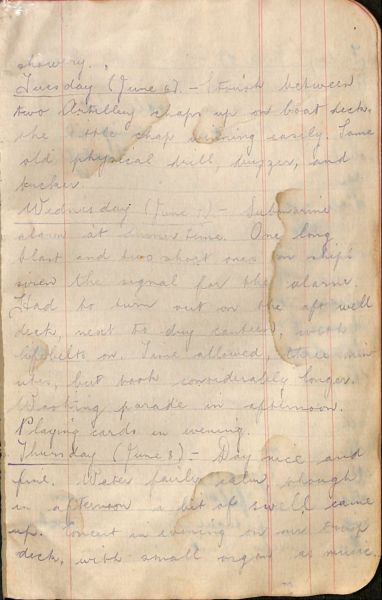 showery.
Tuesday (June 6). - Stoush between
two Artillery chaps up on boat deck,
the little chap winning easily. Same
old physical drill, and
kicker.
Wednesday (June 7) - Submarine
alarm at dinner time. One long
blast and two short ones on ship's
siren the signal for the alarm.
Had to turn out on the aft well
deck, next to dry canteen, with
lifebelts on. Time allowed, three min-
utes, but took considerably longer.
Washing parade in afternoon.
Playing cards in evening.
Thursday (June 8) - Day nice and
fine. Water fairly calm, though
in afternoon a bit of swell came
up. Concert in evening on our troop
deck, with small organ as music.